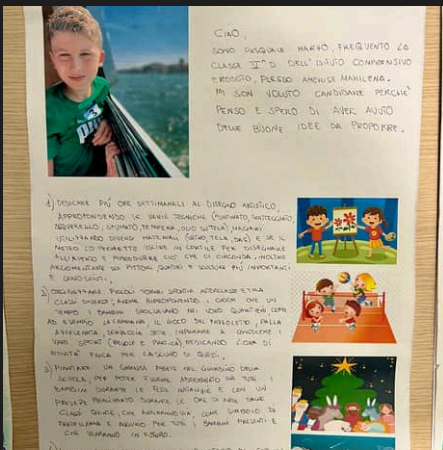 CIAO,
SONO PASQUALE MARZO, FREQUENTO LA
CLASSE V^D DELL'ISTITUTO COMPRENSIVO
ERODOTO, PLESSO AMENISE MARILENA.
MI SON VOLUTO CANDIDARE PERCHE'
PENSO E SPERO DI AVER AVUTO
DELLE BUONE IDEE DA PROPORRE.
1) DEDICARE PIÙ ORE SETTIMANALI AL DISEGNO ARTISTICO,
APPROFONDENDO LE VARIE TECNICHE (PUNTINATO, TRATTEGGIATO,
ACQUERELLO, SFUMATO, TEMPERA, OLIO SU TELA), MAGARI
UTILIZZANDO DIVERSI MATERIALI (VETRO, TELA, DAS) E SE IL
METEO LO PERMETTE USCIRE IN CORTILE PER DISEGNARE
ALL'APERTO E RIPRODURRE CIÒ CHE CI CIRCONDA. INOLTRE
PITTORI, QUADRI E SCULTURE PIÙ IMPORTANTI
E CONOSCIUTI.
2) ORGANIZZARE PICCOLI TORNEI SPORTIVI TRA
CLASSI DIVERSE, I GIOCHI CHE UN
TEMPO I BAMBINI NEI LORO QUARTIERI COME
AD ESEMPIO LA CAMPANA, IL GIOCO DEL FAZZOLETTO, PALLA
AVVELENATA, IMPARARE A CONOSCERE I
VARI SPORT (REGOLE E PRATICA) DEDICANDO L'ORA DI
ATTIVITA' FISICA PER CIASCUNO DI QUESTI.
3) PIANTARE UN GRANDE ABETE NEL GIARDINO DELLA
SCUOLA, PER POTER ESSERE ADDOBBATO DA TUTTI I
BAMBINI DURANTE LE FESTE NATALIZIE E CON UN
PRESEPE REALIZZATO DURANTE LE ORE DI ARTE DALLE
CLASSI QUINTE, CHE COME SIMBOLO DI
FRATELLANZA E AUGURIO PER TUTTI I BAMBINI PRESENTI E
CHE VERRANNO IN FUTURO.